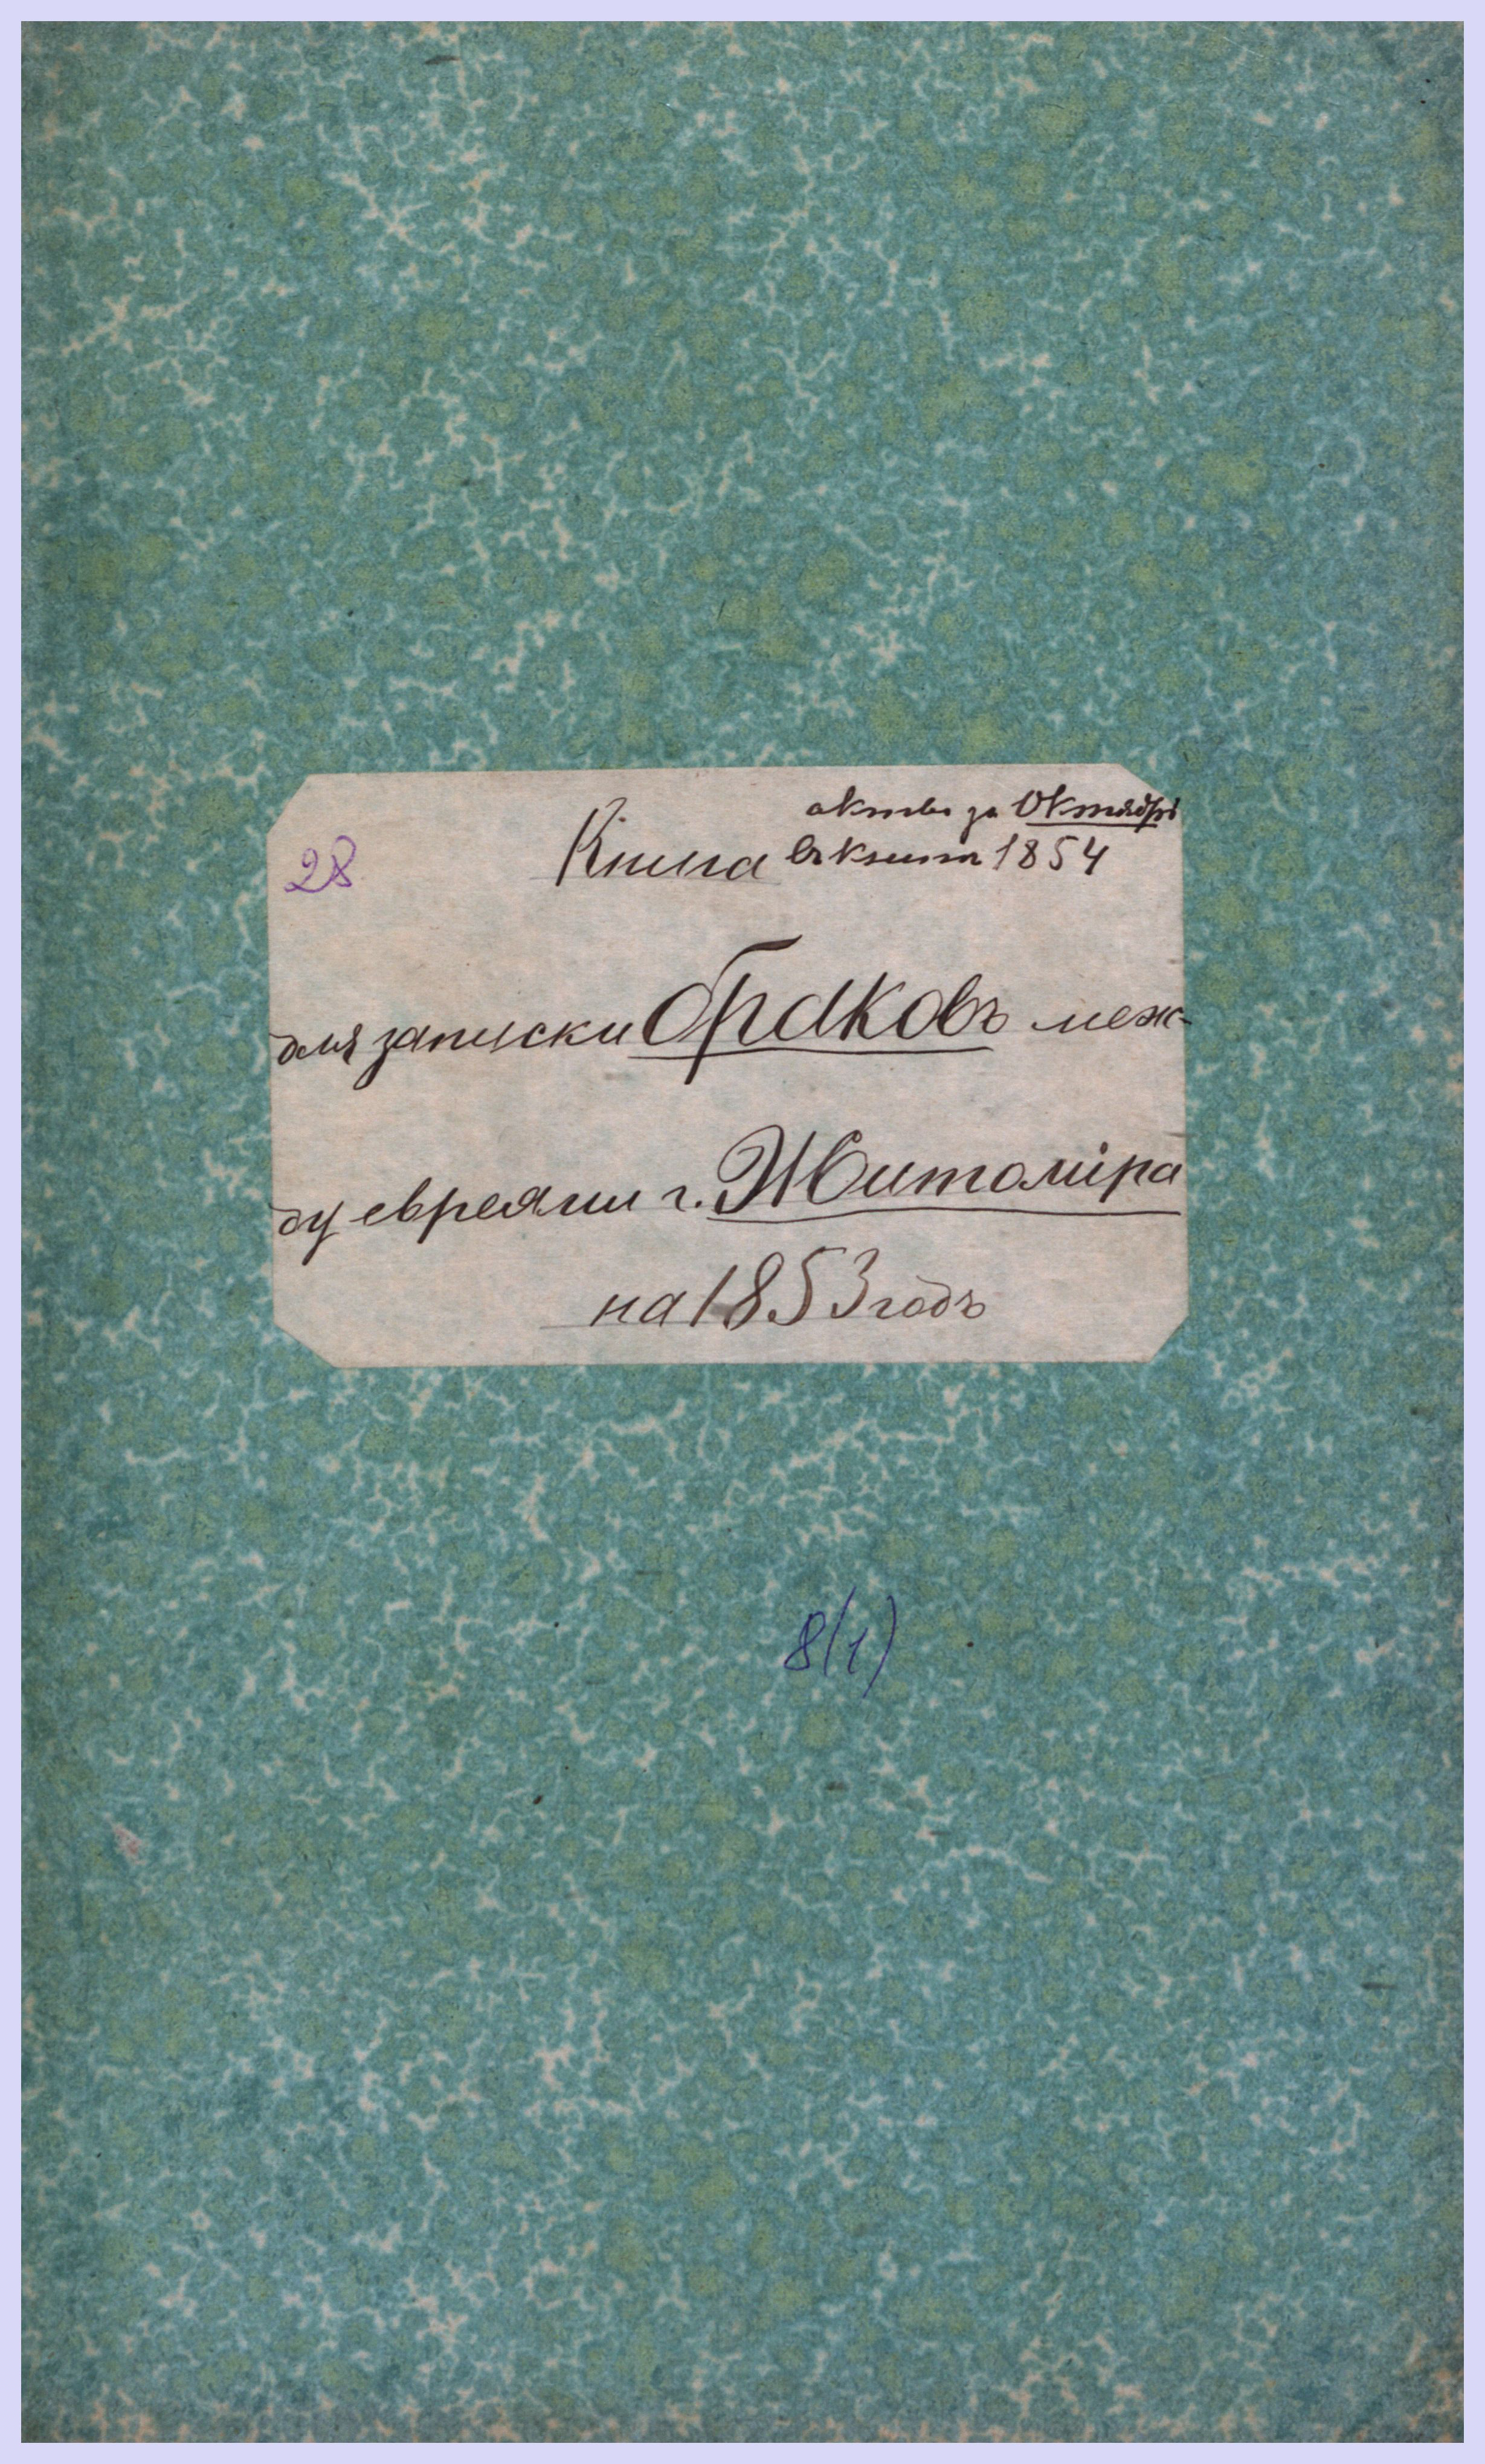 акты за Октябрь
28 Книга въ книгѣ 1854
для записки браковъ меж-
ду евреями г. Житоміра
на 1853 годъ
8(1)